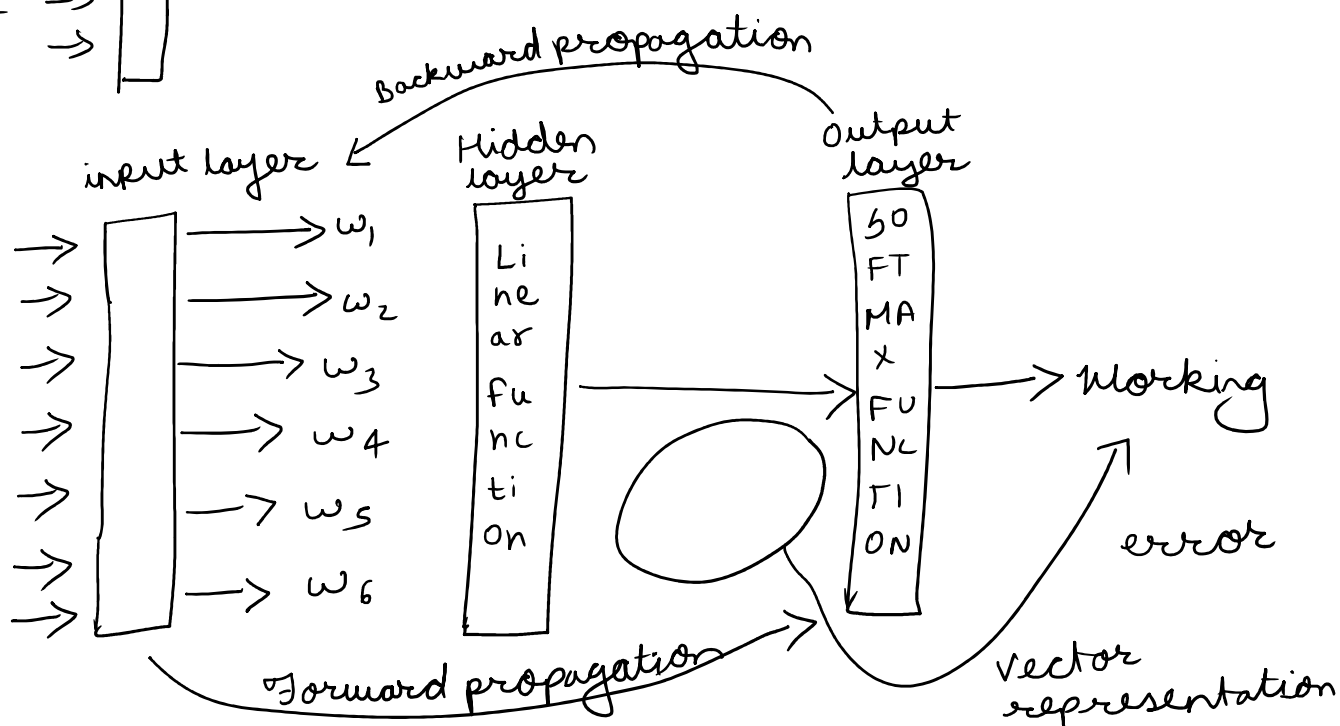 Backward propagation
input layer
Hidden
layer
Output
layer
w1
w2
w3
w4
w5
w6
Li
ne
ar
fu
nc
ti
on
SO
FT
MA
X
FU
NC
TI
ON
Working
error
Forward propagation
vector
representation